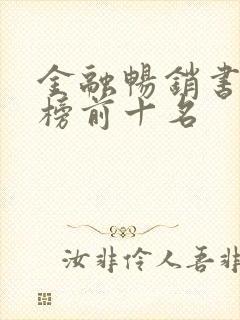 金融暢銷書
榜前十名
汝非伶人吾非